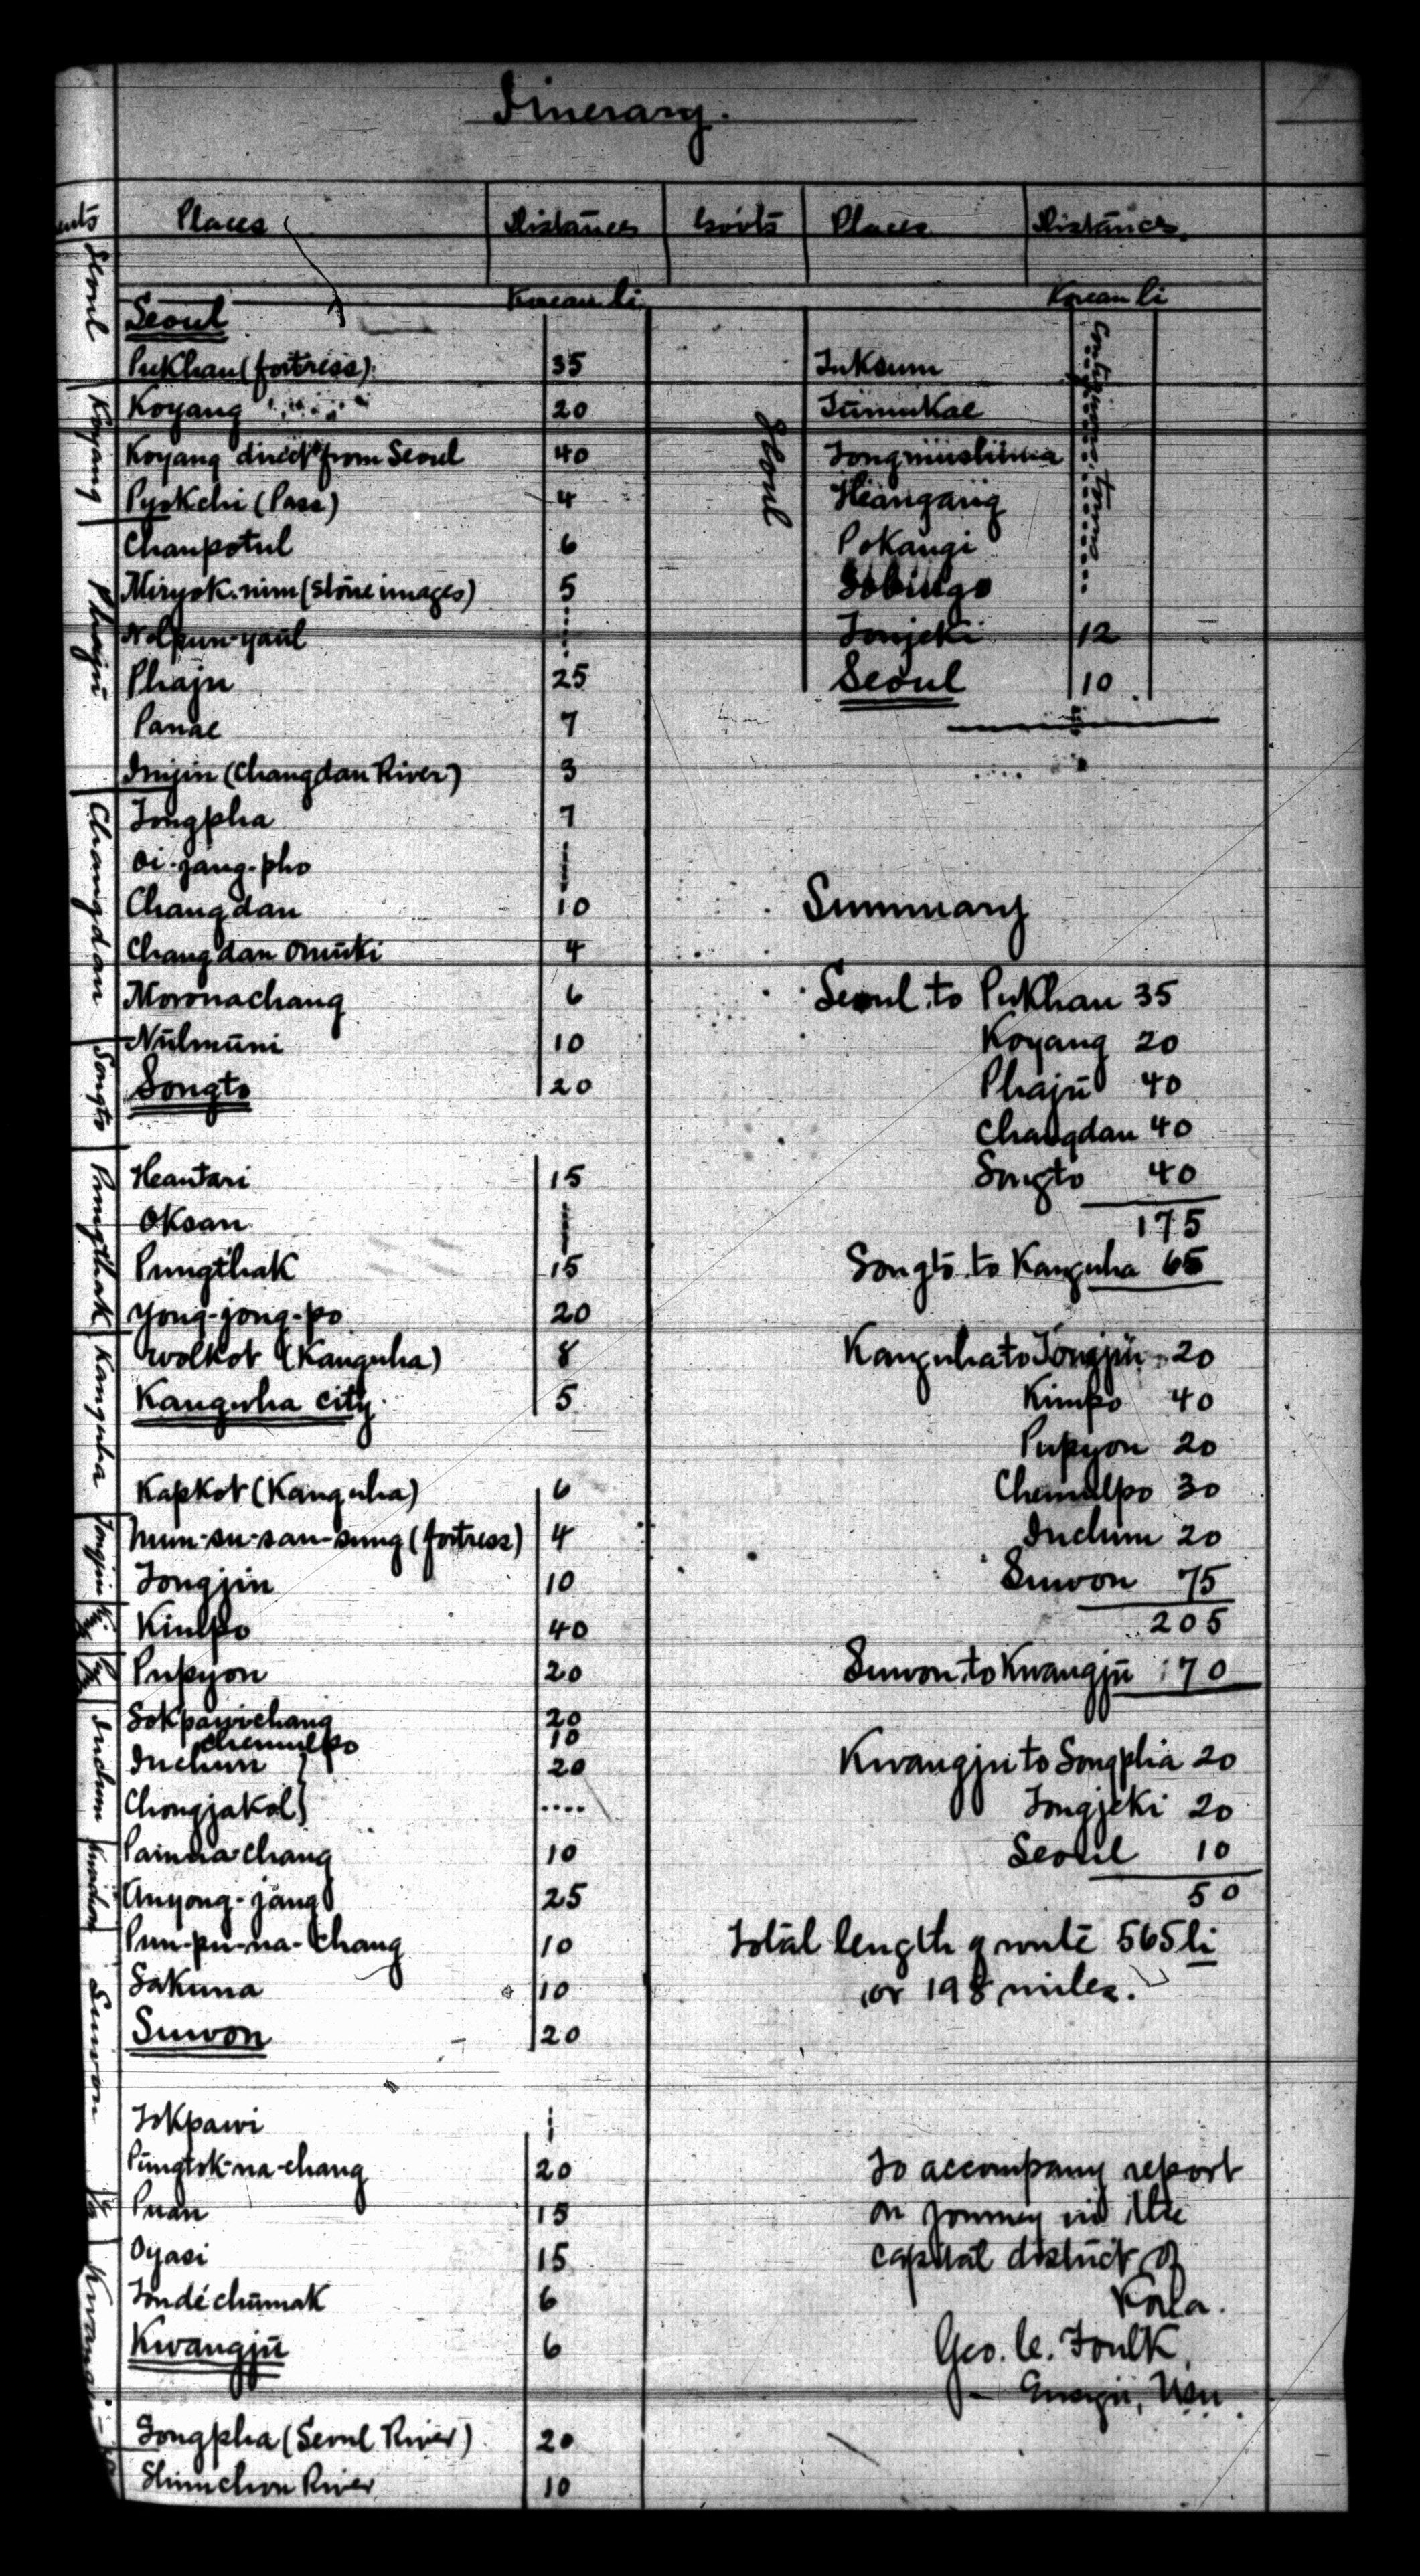 Itinerary.
Places Distances Govts Places Distances
Korean li Korean li
Seoul
Seoul
Pukhan (fortress) 35
Koyang 20
Koyang direct from Seoul 40
Pyokchi (Pass) 4
Chanpotul 6
Miryok-nim (stone images) 5
Nolpun-yaul
Phaju 25
Panae 7
Imjin (Changdan River) 3
Tongpha 7
Oi-jang-pho
Changdan 10
Changdan Omuki 4
Moronachang 6
Nulmuni 10
Songto 20
Heantari 15
Oksan
Pungthak 15
Yong-jong-po 20
Wolkot (Kangwha) 8
Kangwha city 5
Kapkot (Kangwha) 6
Mun-su-san-sung (fortress) 4
Tongjin 10
Kimpo 40
Pupyon 20
Sokpawichang 20
Chemulpo 10
Inchun 20
Chongjakol ....
Painnachang 10
Anyong-jang 25
Pun-pu-na-chang 10
Sakuna 10
Suwon 20
Tokpawi
Pungtok-na-chang 20
Puan 15
Oyasi 15
Tondéchumak 6
Kwangju 6
Songpha (Seoul River) 20
Shinchon River 10
Koyang
Phaju
Changdan
Songto
Pungthak
Kangwha
Tongjin
Inchun
Suwon
Kwangju
Seoul
Tuksum
Tumukae
Hangang
Pokangi
Sobingo
Tonjeki 12
Seoul 10
Summary
Seoul to Pukhan 35
Koyang 20
Phaju 40
Changdan 40
Songto 40
175
Songto to Kangwha 65
Kangwha to Tongjin 20
Kimpo 40
Pupyon 20
Chemulpo 30
Inchun 20
Suwon 75
205
Suwon to Kwangju 70
Kwangju to Songpha 20
Tongjeki 20
Seoul 10
50
Total length of route 565 li
or 198 miles.
To accompany report
on journey in the
capital district of
Korea.
Geo. C. Foulk,
Ensign, USN.